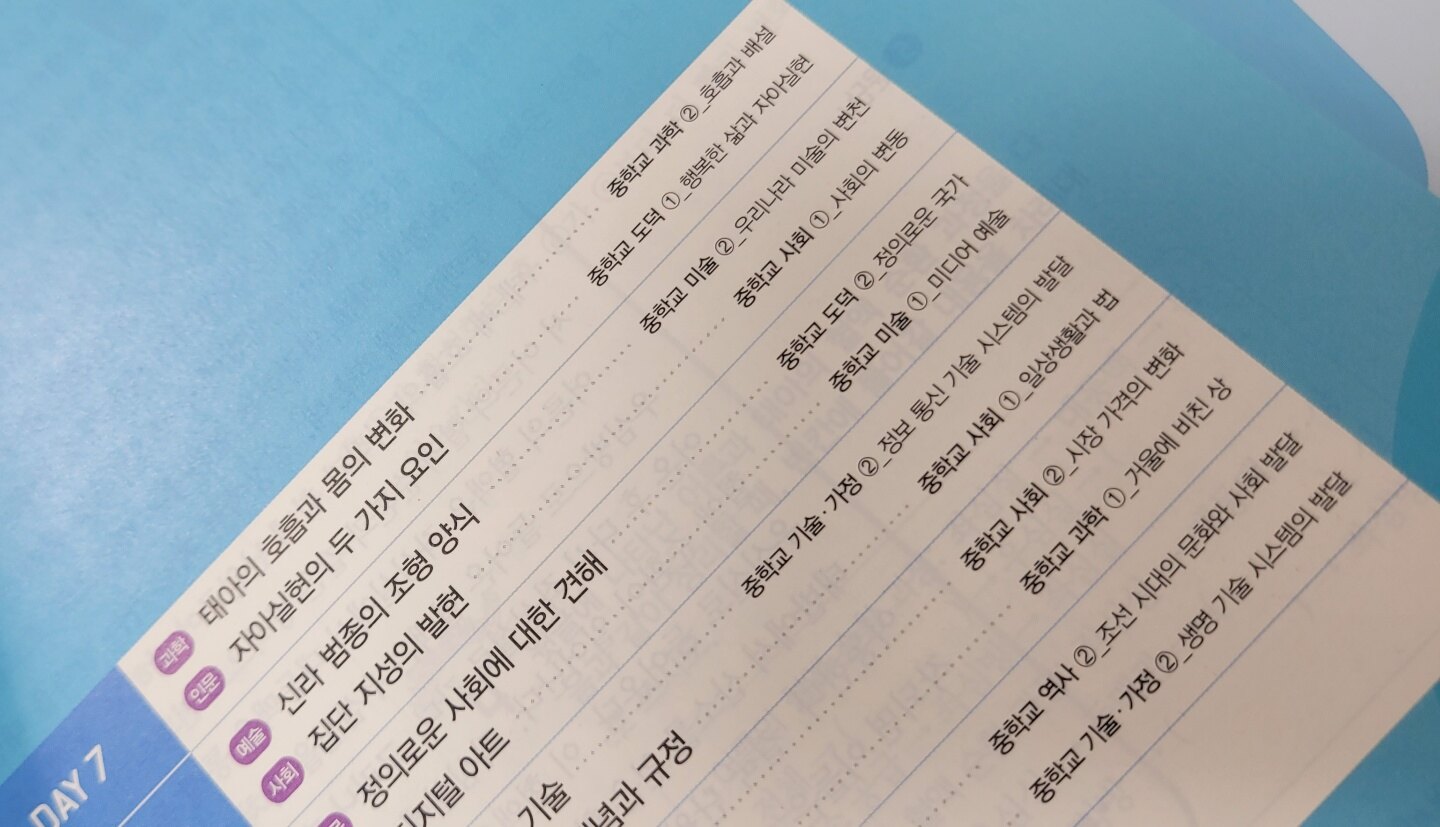 DAY 7
과학 태아의 호흡과 몸의 변화 중학교 과학 ②_호흡과 배설
인문 자아실현의 두 가지 요인 중학교 도덕 ①_행복한 삶과 자아실현
예술 신라 범종의 조형 양식 중학교 미술 ②_우리나라 미술의 변천
사회 집단 지성의 발현 중학교 사회 ①_사회의 변동
정의로운 사회에 대한 견해 중학교 도덕 ②_정의로운 국가
디지털 아트 중학교 미술 ①_미디어 예술
기술 중학교 기술·가정 ②_정보 통신 기술 시스템의 발달
규정 중학교 사회 ①_일상생활과 법
중학교 사회 ②_시장 가격의 변화
중학교 과학 ①_거울에 비친 상
중학교 역사 ②_조선 시대의 문화와 사회 발달
중학교 기술·가정 ②_생명 기술 시스템의 발달